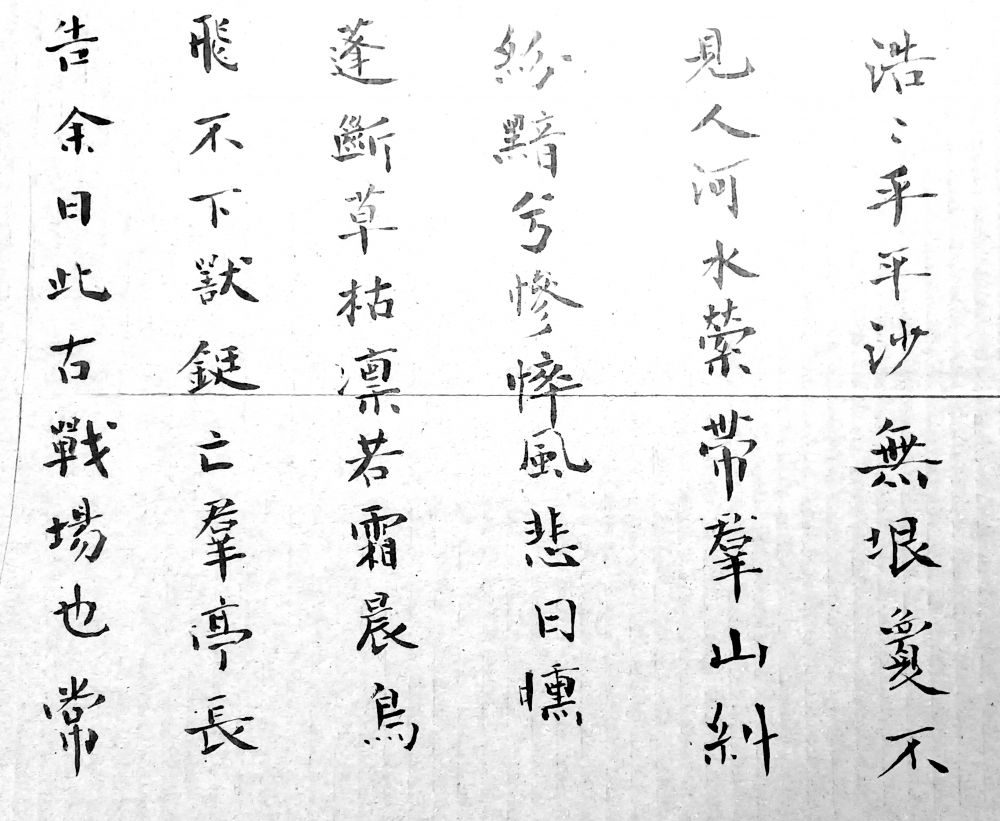 浩〻乎平沙無垠敻不
見人河水縈帶羣山糾
紛黯兮慘悴風悲日曛
蓬斷草枯凛若霜晨鳥
飛不下獸鋌亡羣亭長
告余曰此古戰場也常